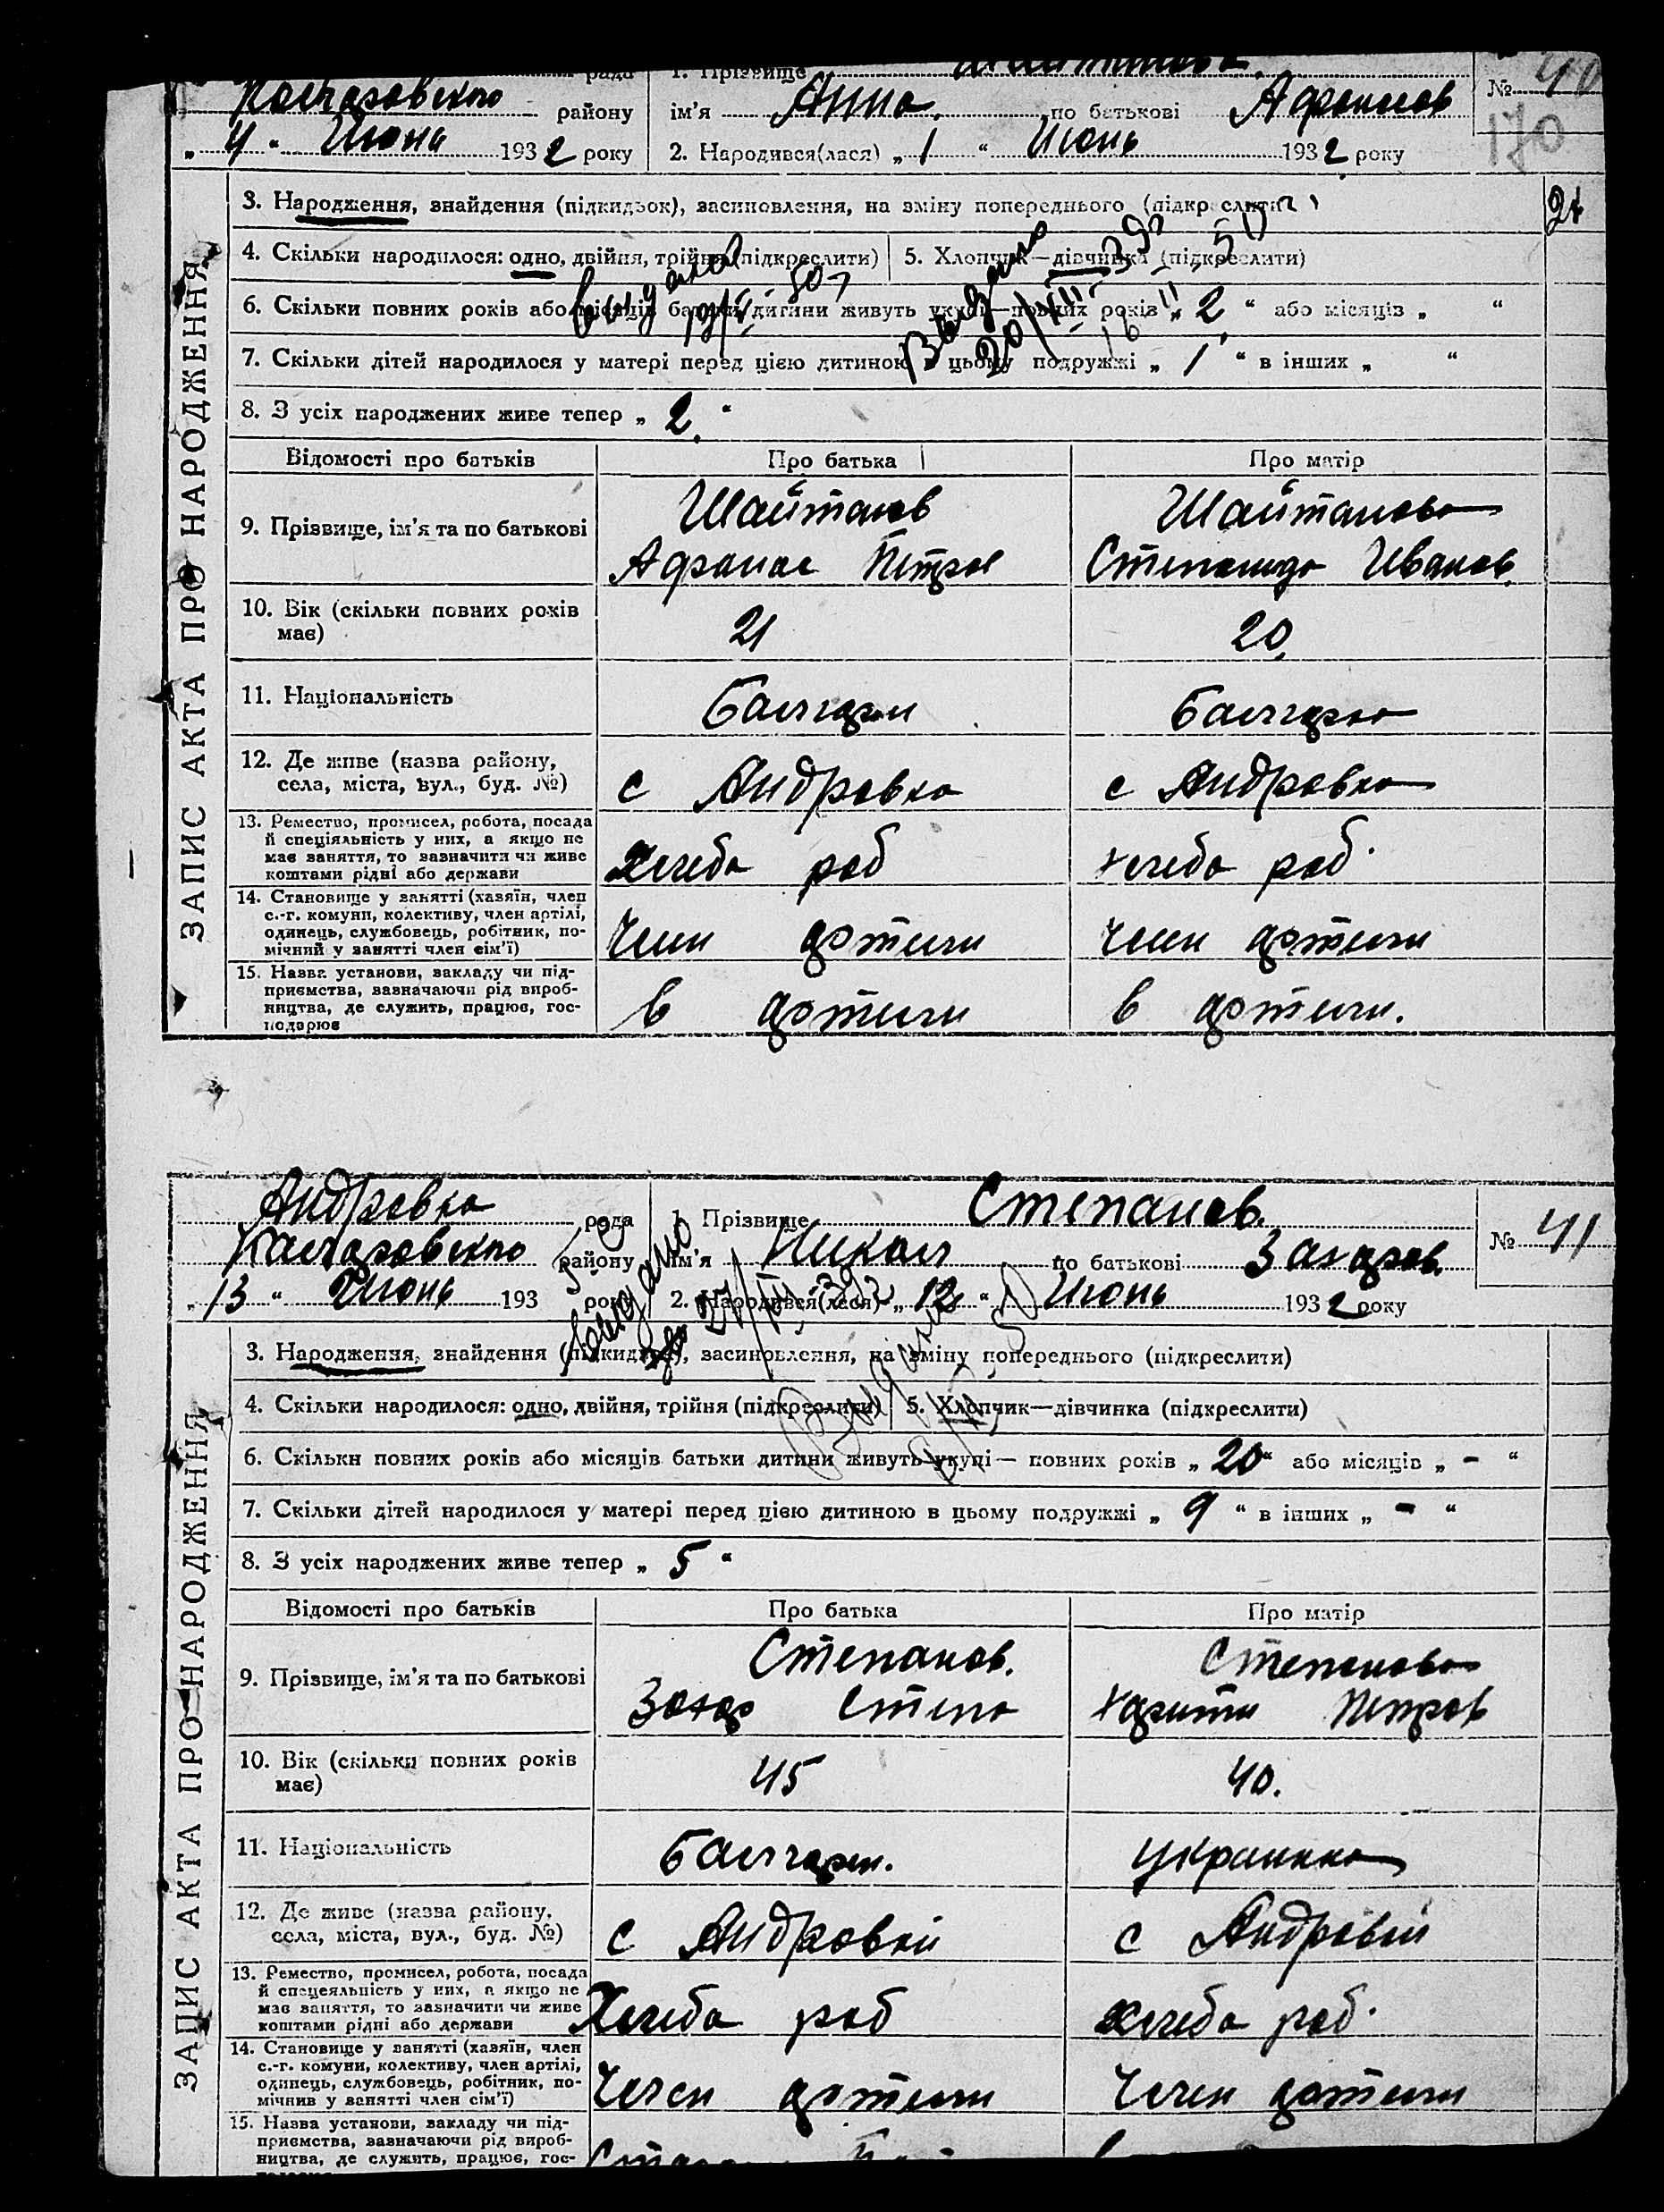 рада 1. Прізвище
району ім'я Анна. по батькові Афанасов № 40
„ 4 “ Июнь 1932 року 2. Народився(лася) „ 1 “ Июнь 1932 року 170
ЗАПИС АКТА ПРО НАРОДЖЕННЯ
3. Народження, знайдення (підкидьок), засиновлення, на зміну попереднього (підкреслити)
4. Скільки народилося: одно, двійня, трійня (підкреслити) 5. Хлопчик—дівчинка (підкреслити)
6. Скільки повних років або місяців батьки дитини живуть укупі—повних років „ 2 “ або місяців „ “
7. Скільки дітей народилося у матері перед цією дитиною в цьому подружжі „ 1 “ в інших „ “
8. З усіх народжених живе тепер „ 2. “
Відомості про батьків Про батька Про матір
9. Прізвище, ім'я та по батькові
Шайтанов Шайтанова
Афанас Петров Степанида Иванов.
10. Вік (скільки повних років має) 21 20.
11. Національність Балгарин Балгарка
12. Де живе (назва району,
села, міста, вул., буд. №) с Андровка с Андровка
13. Ремество, промисел, робота, посада
й спеціяльність у них, а якщо не
має заняття, то зазначити чи живе
коштами рідні або держави
Хлеба роб хлеба роб.
14. Становище у занятті (хазяїн, член
с.-г. комуни, колективу, член артілі,
одинець, службовець, робітник, по-
мічний у занятті член сім'ї)
Член артели член артели
15. Назва установи, закладу чи під-
приємства, зазначаючи рід вироб-
ництва, де служить, працює, гос-
подарює
в артели в артели.
Андровка рада 1. Прізвище Степанов. № 41
району ім'я Никол по батькові Захаров.
„ 13 “ Июнь 193 року 2. Народився(лася) „ 12 “ Июнь 1932 року
Видано
ЗАПИС АКТА ПРО НАРОДЖЕННЯ
3. Народження, знайдення (підкидьок), засиновлення, на зміну попереднього (підкреслити)
4. Скільки народилося: одно, двійня, трійня (підкреслити) 5. Хлопчик—дівчинка (підкреслити)
6. Скільки повних років або місяців батьки дитини живуть укупі — повних років „ 20 “ або місяців „ - “
7. Скільки дітей народилося у матері перед цією дитиною в цьому подружжі „ 9 “ в інших „ - “
8. З усіх народжених живе тепер „ 5 “
Відомості про батьків Про батька Про матір
9. Прізвище, ім'я та по батькові
Степанов. Степанова
Захар Степа Петров
10. Вік (скільки повних років має) 45 40.
11. Національність Балгарин. украинка
12. Де живе (назва району,
села, міста, вул., буд. №) с Андровки с Андровки
13. Ремество, промисел, робота, посада
й спецеяльність у них, а якщо не
має заняття, то зазначити чи живе
коштами рідні або держави
Хлеба роб хлеба роб.
14. Становище у занятті (хазяїн, член
с.-г. комуни, колективу, член артілі,
одинець, службовець, робітник, по-
мічний у занятті член сім'ї)
Член артели Член артели
15. Назва установи, закладу чи під-
приємства, зазначаючи рід вироб-
ництва, де служить, працює, гос-